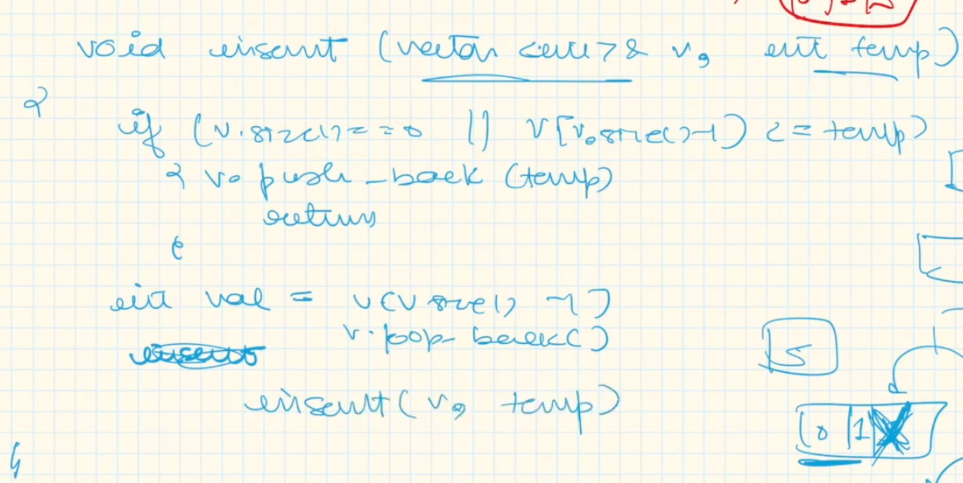 void insert (vector<int>& v, int temp)
{
if (v.size() == 0 || v[v.size()-1] <= temp)
{ v.push_back (temp)
return
}
int val = v[v.size() -1]
v.pop_back()
insert(v, temp)
}
5
0 | 1